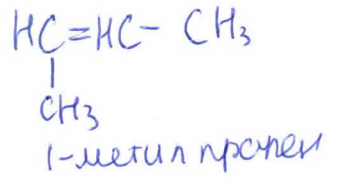 HC=HC- CH₃
|
CH₃
1-метил пропен